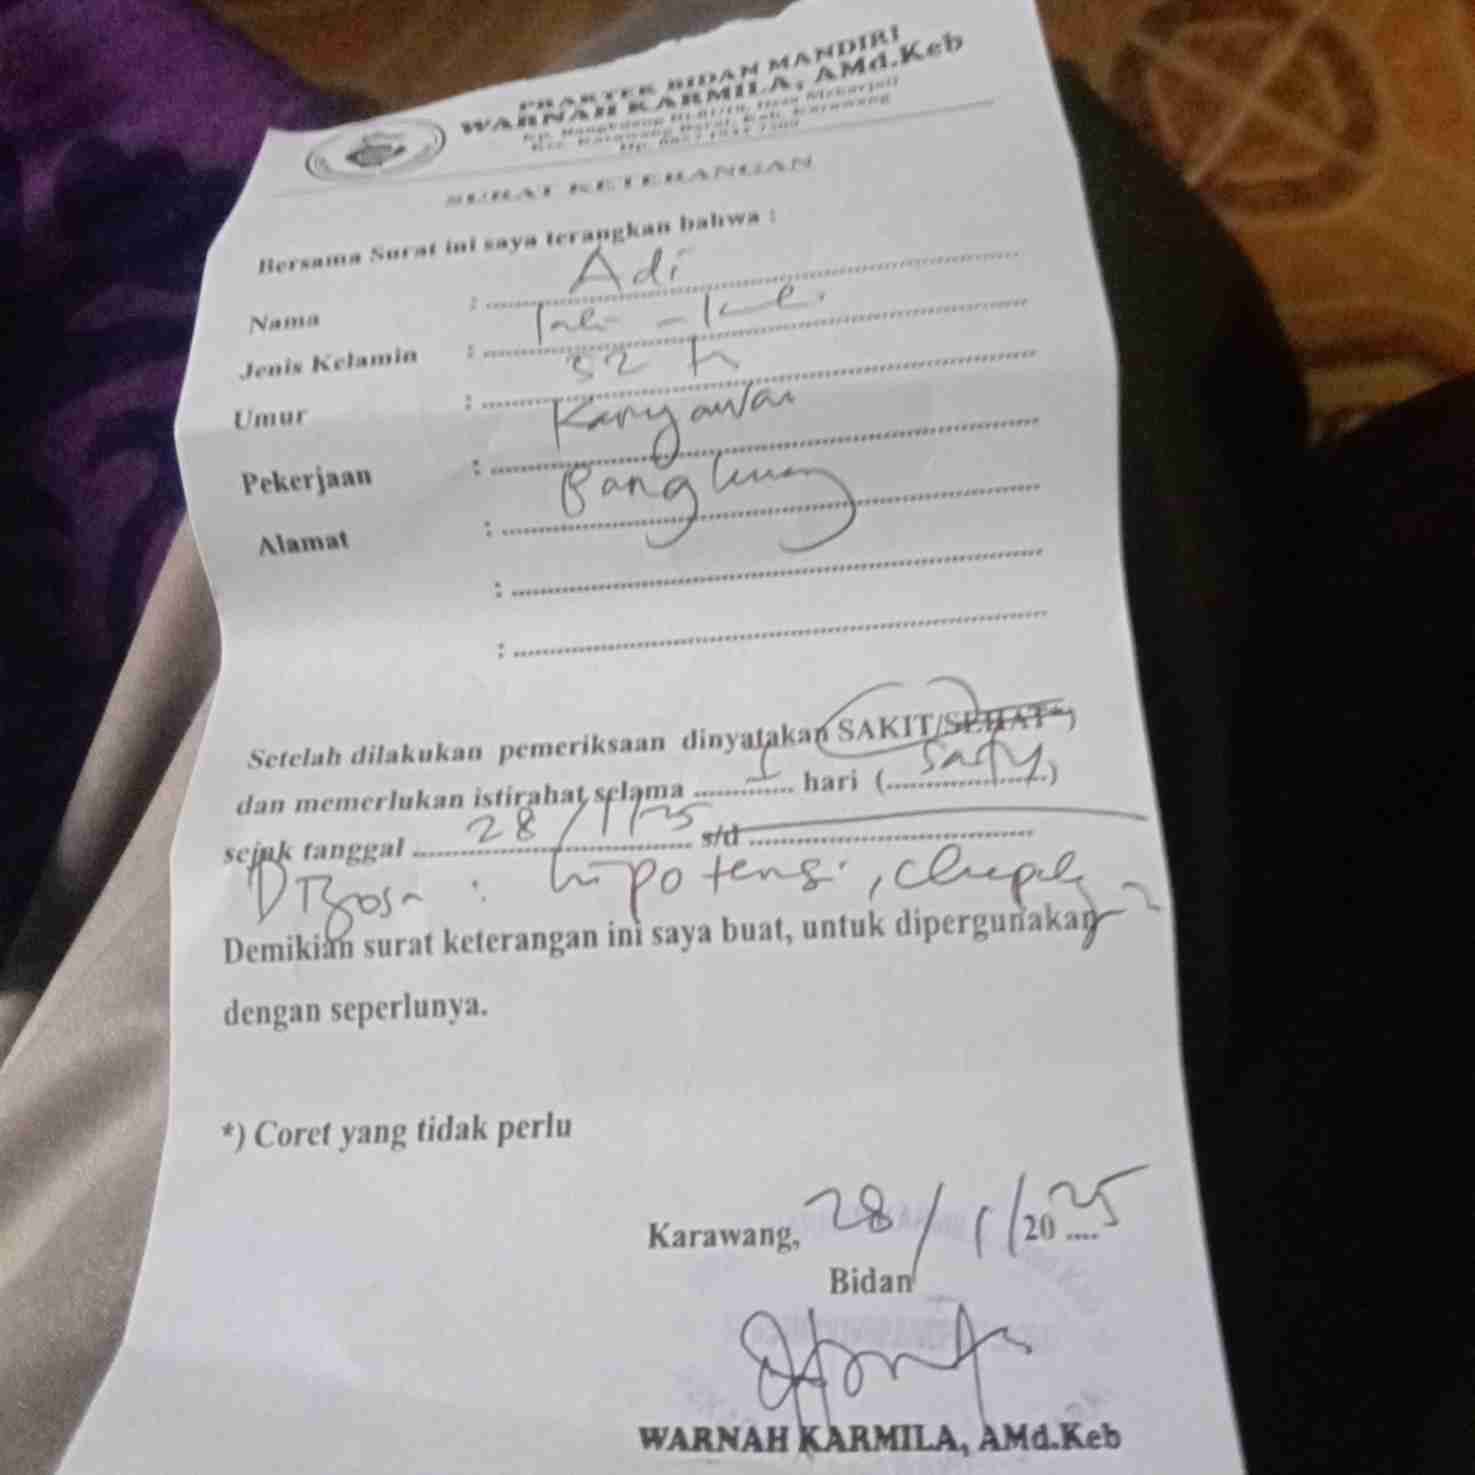 PRAKTEK BIDAN MANDIRI
WARNAH KARMILA, AMd.Keb
Kec. Karawang Barat, Kab. Karawang
SURAT KETERANGAN
Bersama Surat ini saya terangkan bahwa :
Nama : Adi
Jenis Kelamin : Laki - Laki
Umur : 32 th
Pekerjaan : Karyawan
Alamat :
:
:
Setelah dilakukan pemeriksaan dinyatakan SAKIT/SEHAT*)
dan memerlukan istirahat selama 1 hari (satu)
sejak tanggal 28/1/25 s/d
Diagnosa : hipotensi,
Demikian surat keterangan ini saya buat, untuk dipergunakan
dengan seperlunya.
*) Coret yang tidak perlu
Karawang, 28/1/2025
Bidan
WARNAH KARMILA, AMd.Keb